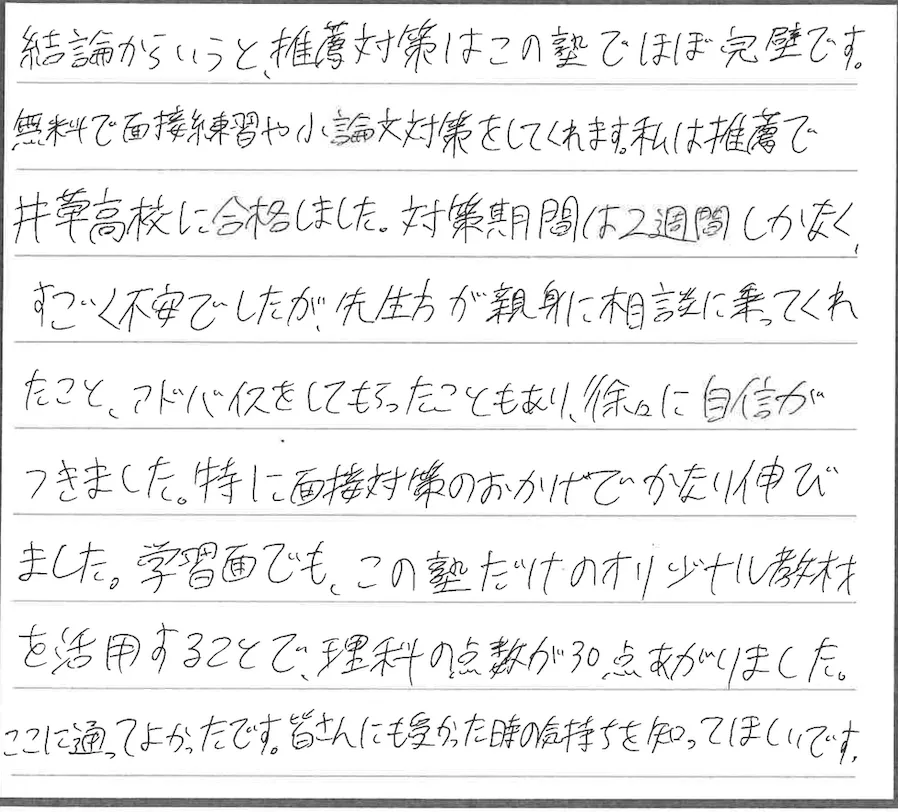 結論からいうと、推薦対策はこの塾でほぼ完璧です。
無料で面接練習や小論文対策をしてくれます。私は推薦で
井草高校に合格しました。対策期間は2週間しかなく、
すごく不安でしたが、先生方が親身に相談に乗ってくれ
たこと、アドバイスをしてもらったこともあり、徐々に自信が
つきました。特に面接対策のおかげでかなり伸び
ました。学習面でも、この塾だけのオリジナル教材
を活用することで、理科の点数が30点あがりました。
ここに通ってよかったです。皆さんにも受かった時の気持ちを知ってほしいです。